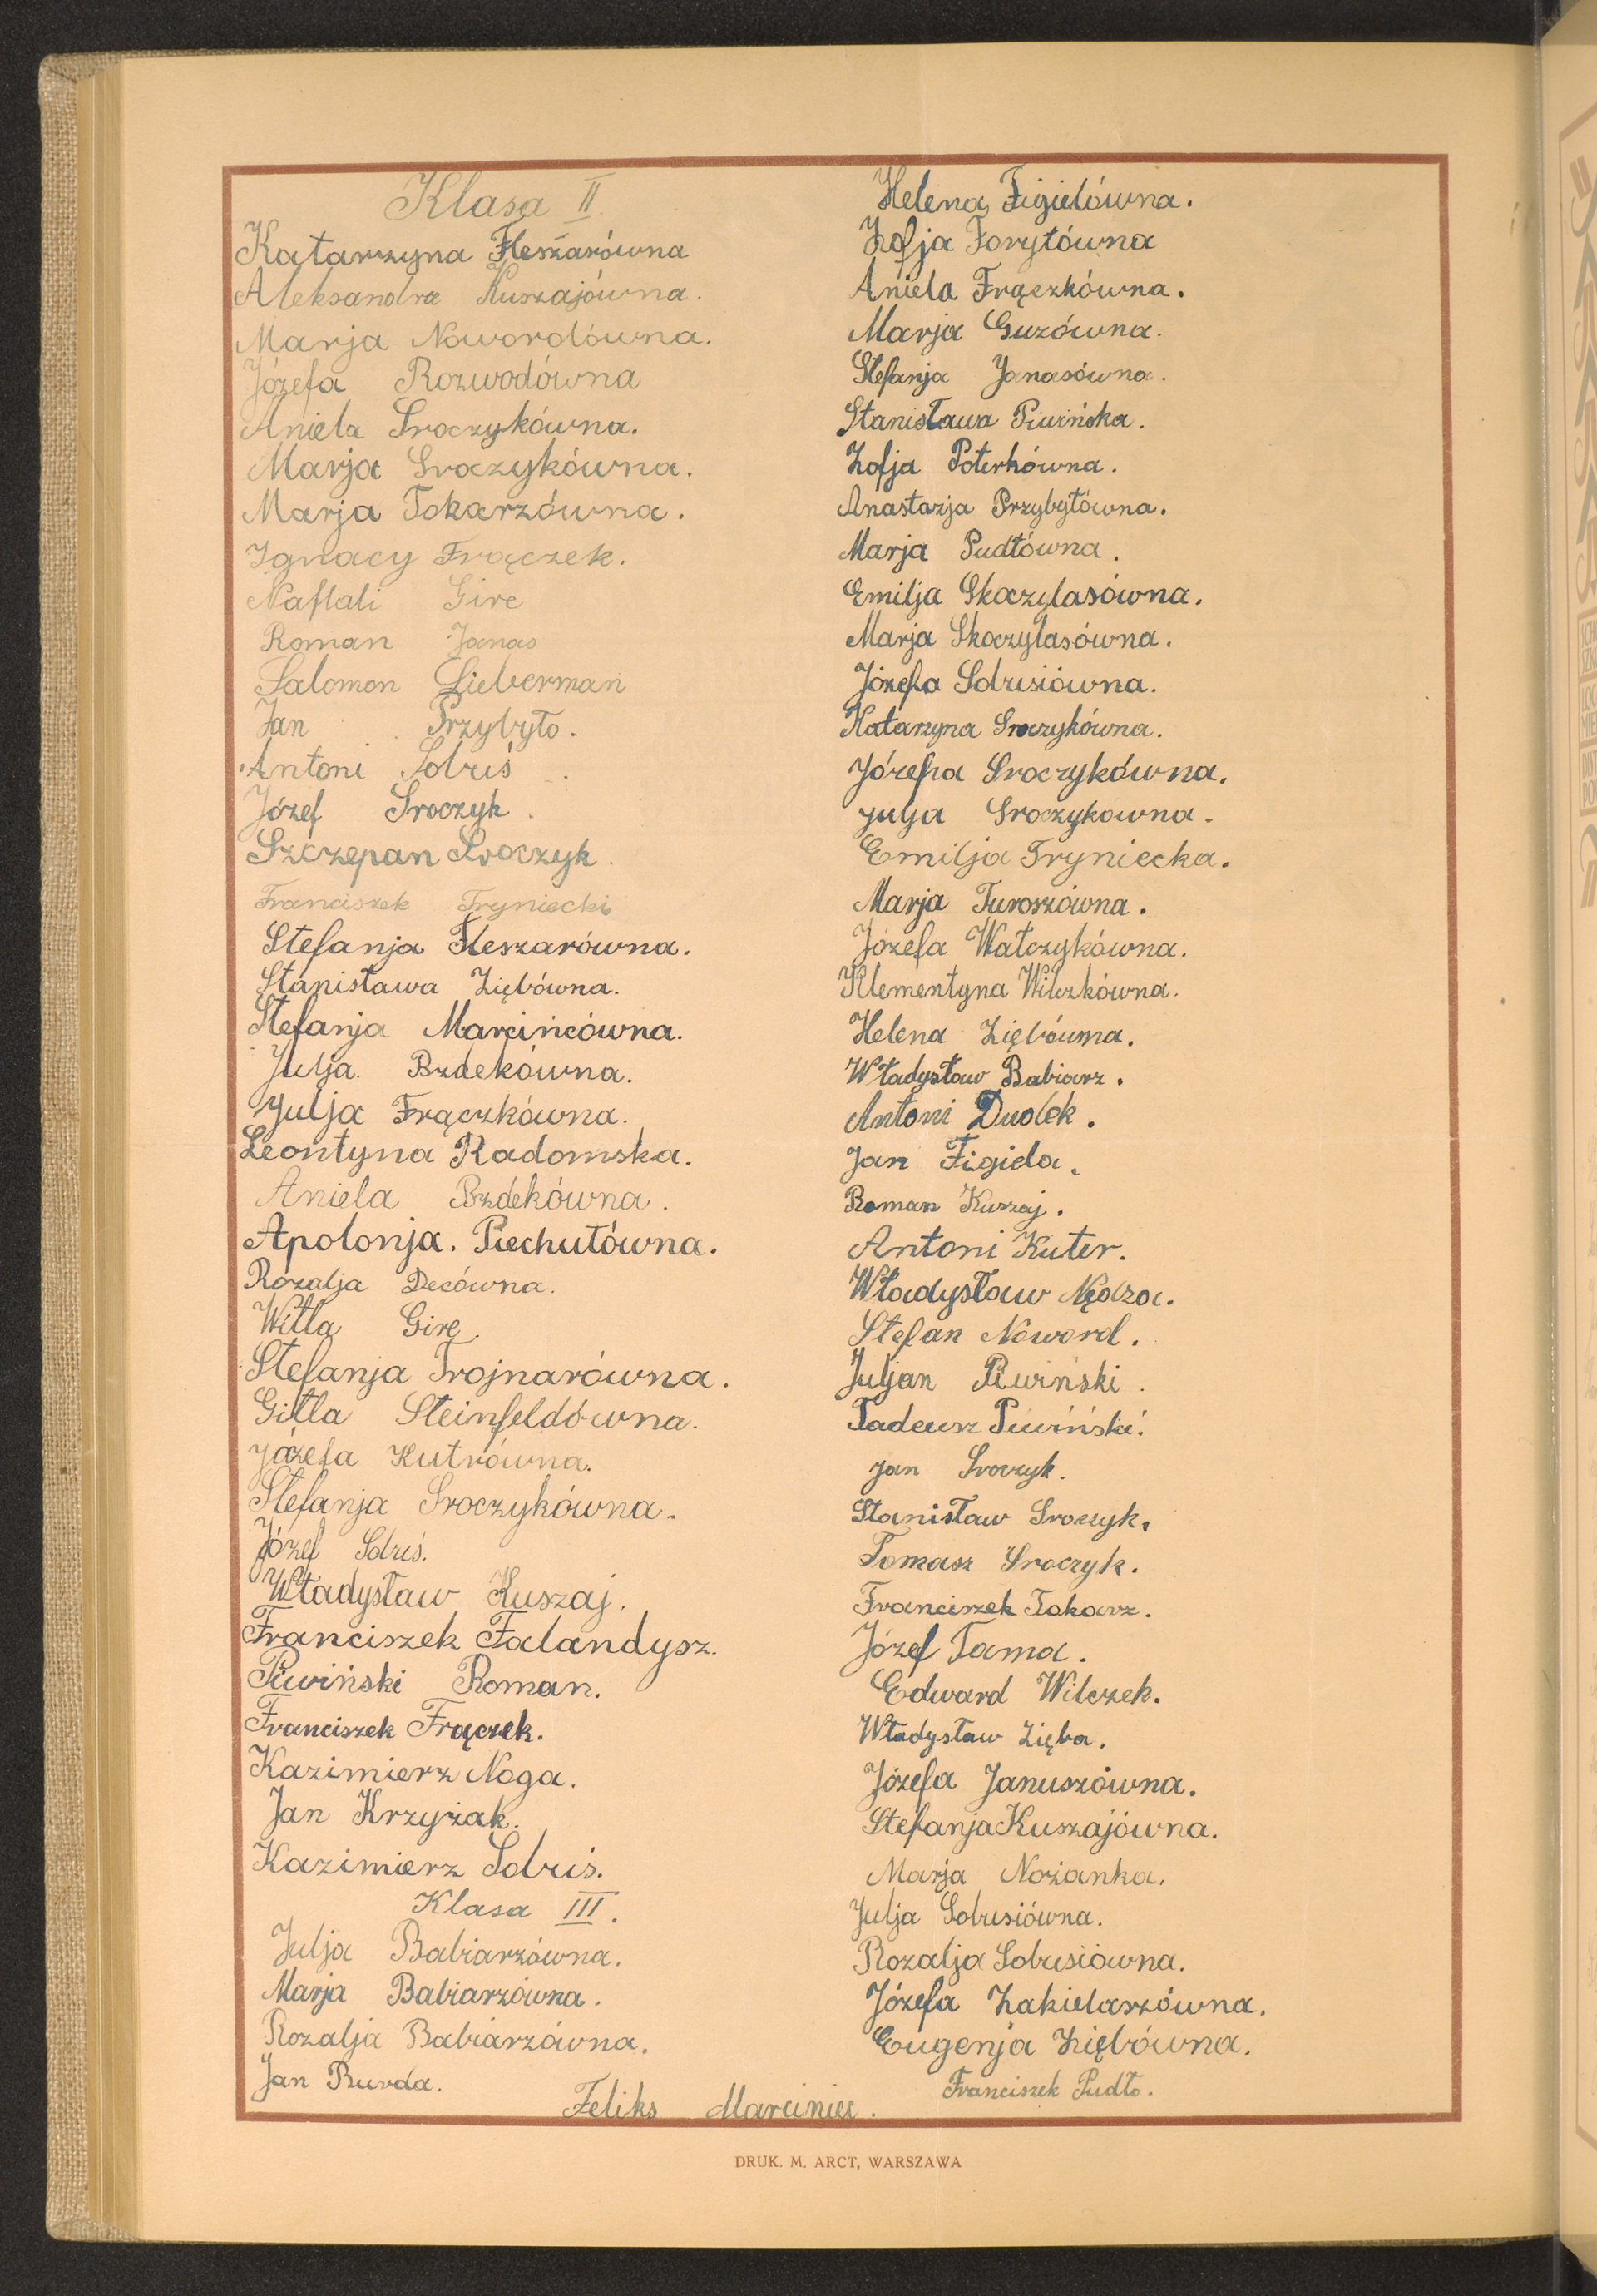 Klasa II.
Katarzyna Fleszarówna
Aleksandra Kuszajówna.
Marja Nowordówna.
Józefa Rozwodówna
Aniela Sroczykówna.
Marja Sroczykówna.
Marja Tokarzówna.
Ignacy Frączek.
Naftali Gire
Roman Janas
Salomon Lieberman
Jan Przybyło.
Antoni Sobuś.
Józef Sroczyk.
Szczepan Sroczyk.
Franciszek Tryniecki
Stefanja Fleszarówna.
Stanisława Ziębówna.
Stefanja Marcińcówna.
Julja Bzdekówna.
Julja Frączkówna.
Leontyna Radomska.
Aniela Bzdekówna.
Apolonja. Piechutówna.
Rozalja Decówna.
Witla Gire.
Stefanja Trojnarówna.
Gitla Steinfeldówna.
Józefa Kutrówna.
Stefanja Sroczykówna.
Józef Sobuś.
Władysław Kuszaj.
Franciszek Falandysz.
Piwiński Roman.
Franciszek Frączek.
Kazimierz Noga.
Jan Krzyżak.
Kazimierz Sobuś.
Klasa III.
Julja Babiarzówna.
Marja Babiarzówna.
Rozalja Babiarzówna.
Jan Burda.
Feliks Marciniec.
Helena Figielówna.
Zofja Forytówna
Aniela Frączkówna.
Marja Guzówna.
Stefanja Janasówna.
Stanisława Piwińska.
Zofja Poterkówna.
Anastazja Przybyłówna.
Marja Pudłówna.
Emilja Skoczylasówna.
Marja Skoczylasówna.
Józefa Sobusiówna.
Katarzyna Sroczykówna.
Józefa Sroczykówna.
Julja Sroczykowna.
Emilja Tryniecka.
Marja Turoszówna.
Józefa Wałczykówna.
Klementyna Wilczkówna.
Helena Ziębówna.
Władysław Babiarz.
Antoni Dudek.
Jan Figiela.
Roman Kuszaj.
Antoni Kuter.
Władysław Nędza.
Stefan Noword.
Juljan Piwiński.
Tadeusz Piwiński.
Jan Sroczyk.
Stanisław Sroczyk.
Tomasz Sroczyk.
Franciszek Tokarz.
Józef Tama.
Edward Wilczek.
Władysław Zięba.
Józefa Januszówna.
Stefanja Kuszajówna.
Marja Nożanka.
Julja Sobusiówna.
Rozalja Sobusiówna.
Józefa Zakielarzówna.
Eugenja Ziębówna.
Franciszek Pudło.
DRUK. M. ARCT, WARSZAWA